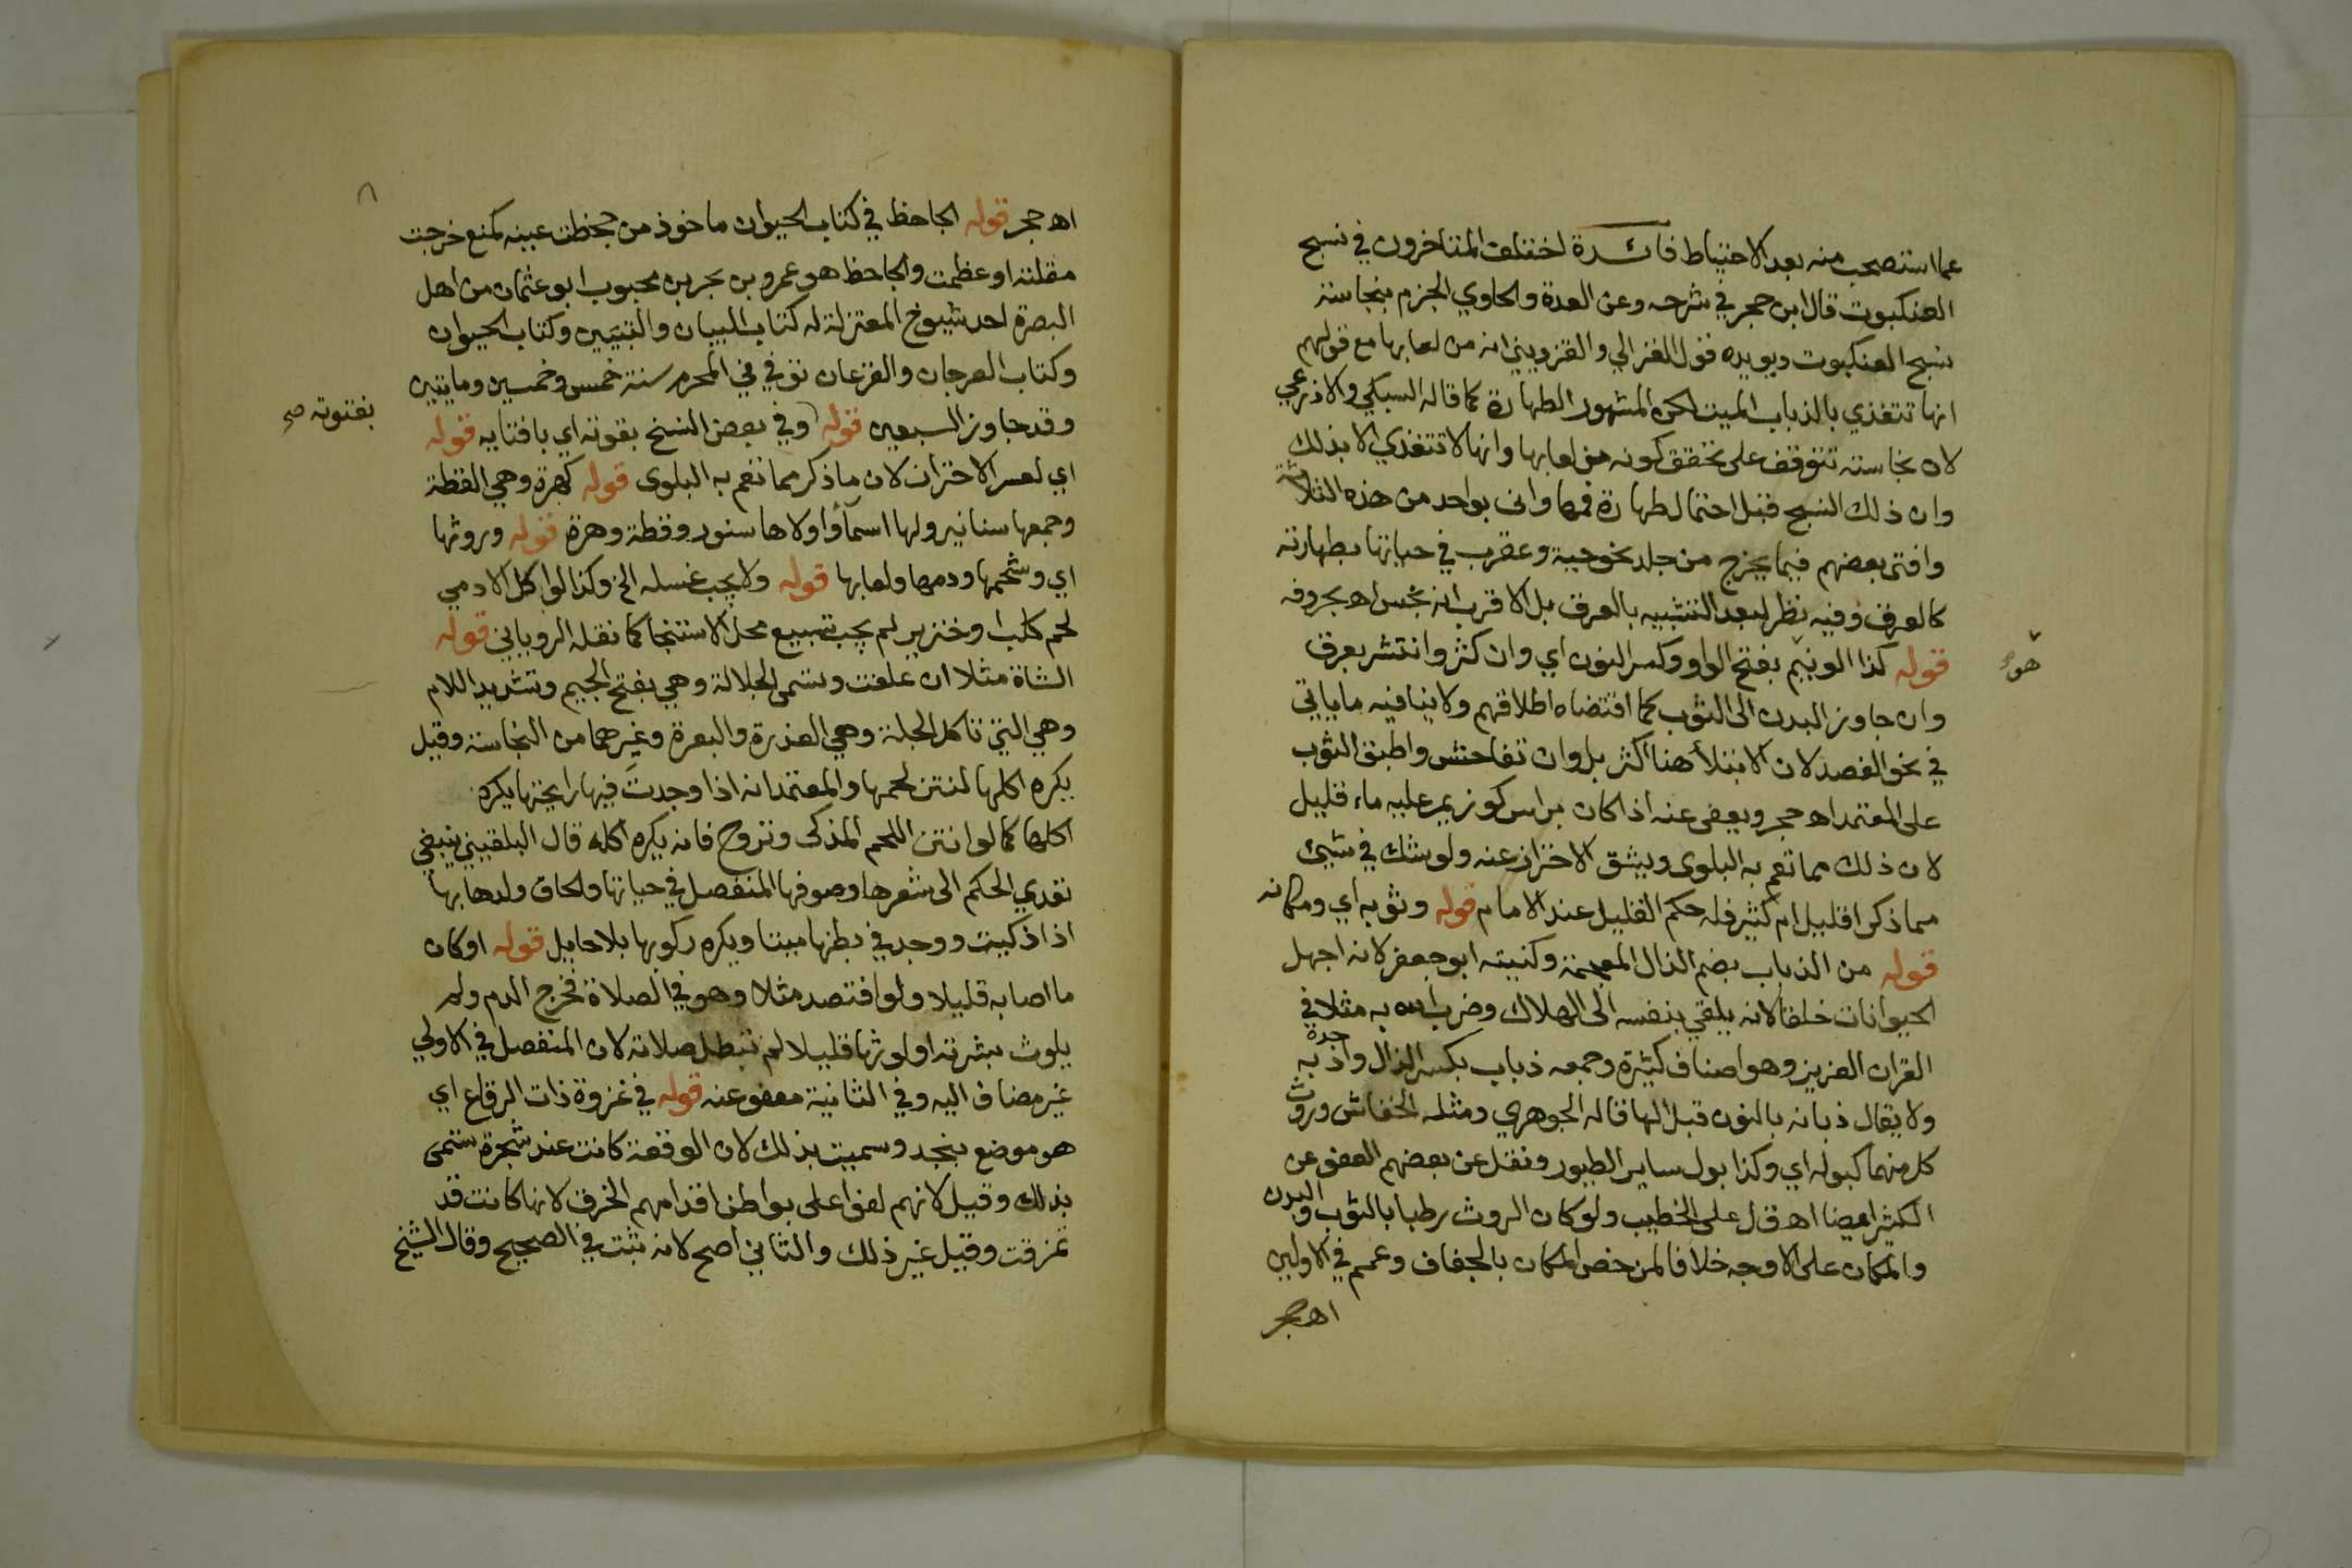 عما استصحب منه بعد الاحتياط فائدة اختلف المتاخرون في نسج
العنكبوت قال ابن حجر في شرحه وعن العدة والحاوي الجزم بنجاسة
نسج العنكبوت ويويده قول الغزالي والقزويني انه من لعابها مع قولهم
انها تتغذي بالذباب الميت لكن المشهور الطهارة كما قاله السبكي والاذرعي
لان نجاسته تتوقف على تحقق كونه من لعابها وانها لا تتغذي الا بذلك
وان ذلك النسج قبل احتمال طهارة فمها وانى بواحد من هذه الثلاثة
وافتى بعضهم فيما يخرج من جلد نحو حية وعقرب في حياتها بطهارته
كالعرق وفيه نظر لبعد التشبيه بالعرق بل الاقرب انه نجس اه بحروفه
قوله كذا الونيم بفتح الواو وكسر النون اي وان كثر وانتشر بعرق
هو
وان جاوز البدن الى الثوب كما اقتضاه اطلاقهم ولا ينافيه ما ياتي
في نحو الفصد لان الابتلأ هنا اكثر بل وان تفاحش واطبق الثوب
على المعتمد اه حجر ويعفى عنه اذا كان براس كوز يمر عليه ماء قليل
لان ذلك مما تعم به البلوى ويشق الاحتراز عنه ولو شك في شيئ
مما ذكر اقليل ام كثير فله حكم القليل عند الامام قوله وثوبه اي ومكانه
قوله من الذباب بضم الذال المعجمة وكنيته ابو جعفر لانه اجهل
الحيوانات خلقا لانه يلقي بنفسه الى الهلاك وضرب الله به مثلا في
القران العزيز وهو اصناف كثيرة وجمعه ذباب بكسر الذال واذبه
ولا يقال ذبانه بالنون قبل الها قاله الجوهري ومثله الخفاش وروث
كل منهما كبوله اي وكذا بول ساير الطيور ونقل عن بعضهم العفو عن
الكثير ايضا اه ق ل على الخطيب ولو كان الروث رطبا بالثوب والبدن
والمكان على الاوجه خلافا لمن خص المكان بالجفاف وعمم في الاولين
اه حجر
اه حجر قوله الجاحظ في كتاب الحيوان ماخوذ من جحظت عينه كمنع خرجت
مقلته او عظمت والجاحظ هو عمرو بن بحر بن محبوب ابو عثمان من اهل
البصرة احد شيوخ المعتزلة له كتاب البيان والتبيين وكتاب الحيوان
وكتاب العرجان والقرعان توفي في المحرم سنة خمس وخمسين ومايتين
وقد جاوز السبعين قوله وفي بعض النسخ بقوته اي بافتايه قوله
بفتوته صح
اي لعسر الاحتراز لان ما ذكر مما تعم به البلوى قوله كهرة وهي القطة
وجمعها سنانير ولها اسمآ واولاها سنور وقطة وهرة قوله وروثها
اي وشحمها ودمها ولعابها قوله ولا يجب غسله الخ وكذا لو اكل الادمي
لحم كلب او خنزير لم يجب تسبيع محل الاستنجا كما نقله الروياني قوله
الشاة مثلا ان علفت وتسمى الجلالة وهي بفتح الجيم وتشديد اللام
وهي التي تاكل الجلة وهي العذرة والبعرة وغيرهما من النجاسة وقيل
يكره اكلها لنتن لحمها والمعتمد انه اذا وجدت فيها رايحتها يكره
اكلها كما لو انتن اللحم المذكى وتروح فانه يكره اكله قال البلقيني ينبغي
تعدي الحكم الى شعرها وصوفها المنفصل في حياتها والحاق ولدها بها
اذا ذكيت ووجد في بطنها ميتا ويكره ركوبها بلا حايل قوله او كان
ما اصابه قليلا ولو افتصد مثلا وهو في الصلاة فخرج الدم ولم
يلوث بشرته او لوثها قليلا لم تبطل صلاته لان المنفصل في الاولي
غير مضاف اليه وفي الثانية معفو عنه قوله في غزوة ذات الرقاع اي
هو موضع بنجد وسميت بذلك لان الوقعة كانت عند شجرة تسمى
بذلك وقيل لانهم لفوا على بواطن اقدامهم الخرق لانها كانت قد
تمزقت وقيل غير ذلك والثاني اصح لانه ثبت في الصحيح وقال الشيخ